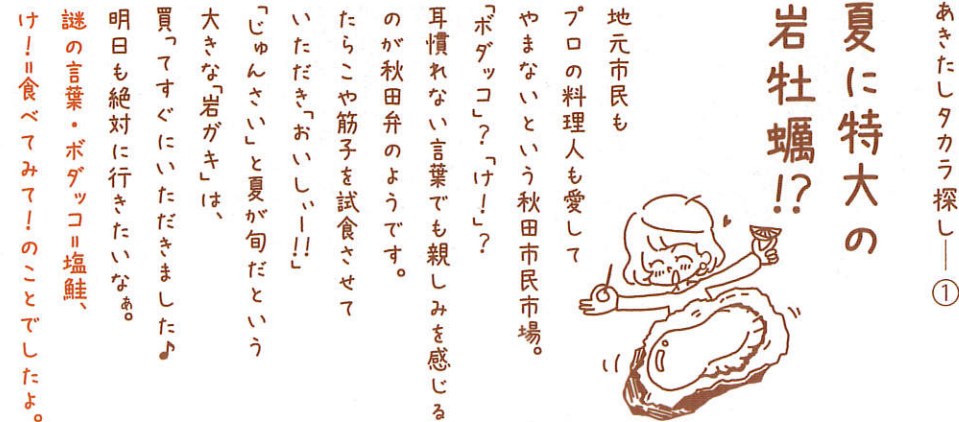 あきたしタカラ探し——①
夏に特大の
岩牡蠣!?
地元市民も
プロの料理人も愛して
やまないという秋田市民市場。
「ボダッコ」?「け!」?
耳慣れない言葉でも親しみを感じる
のが秋田弁のようです。
たらこや筋子を試食させて
いただき「おいしぃー!!」
「じゅんさい」と夏が旬だという
大きな「岩ガキ」は、
買ってすぐにいただきました♪
明日も絶対に行きたいなぁ。
謎の言葉・ボダッコ=塩鮭、
け!=食べてみて!のことでしたよ。